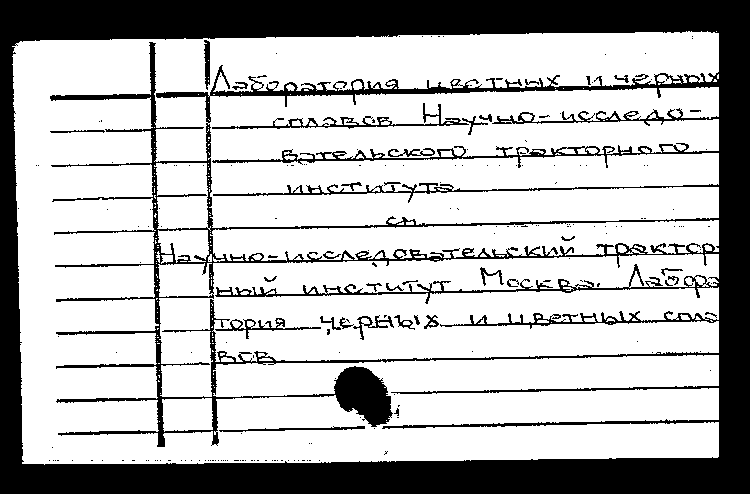 Лаборатория цветных и черных
сплавов Научно-исследо-
вательского тракторного
института
см.
Научно-исследовательский трактор-
ный институт. Москва. Лабора
тория черных и цветных спла
вов.